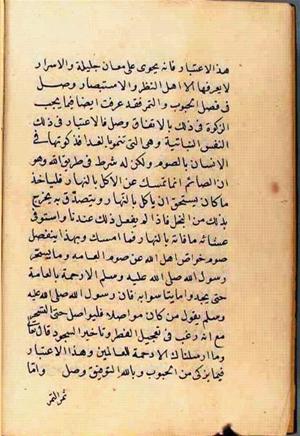 هذا الاعتبار فانه يحوى على معان جليلة والاسرار
لا يعرفها الا اهل النظر والاستبصار وصل
في فصل الحبوب والتمر فقد عرفت ايضا فيما يجب
الزكوة في ذلك بالاتفاق وصل فالاعتبار في ذلك
النفس النباتية وهى التى تنمو بالغذا فزكوتها في
الانسان بالصوم ولكن له شرط في طريق الله وهو
ان الصائم انما تمسك عن الاكل بالنهار فلياخذ
ما كان يستحق ان ياكل بالنهار ويتصدق به ليخرج
بذلك من البخل فاذا لم يفعل ذلك عندنا واستوفى
عشائه ما فاته بالنهار فما امسك وبهذا ينفصل
صوم خواص اهل الله عن صوم العامه وما سحر
رسول الله صلى الله عليه وسلم الا رحمة بالعامة
حتى يجدوا ما يتأسوا به فان رسول الله صلى الله عليه
وسلم يقول من كان مواصلا فليواصل حتى السحر
مع انه رغب في تعجيل الفطر وتاخير السحور قال تعالى
وما ارسلناك الا رحمة للعالمين وهذا الاعتبار
فيما يزكى من الحبوب وبالله التوفيق وصل واما
ثمر التمر